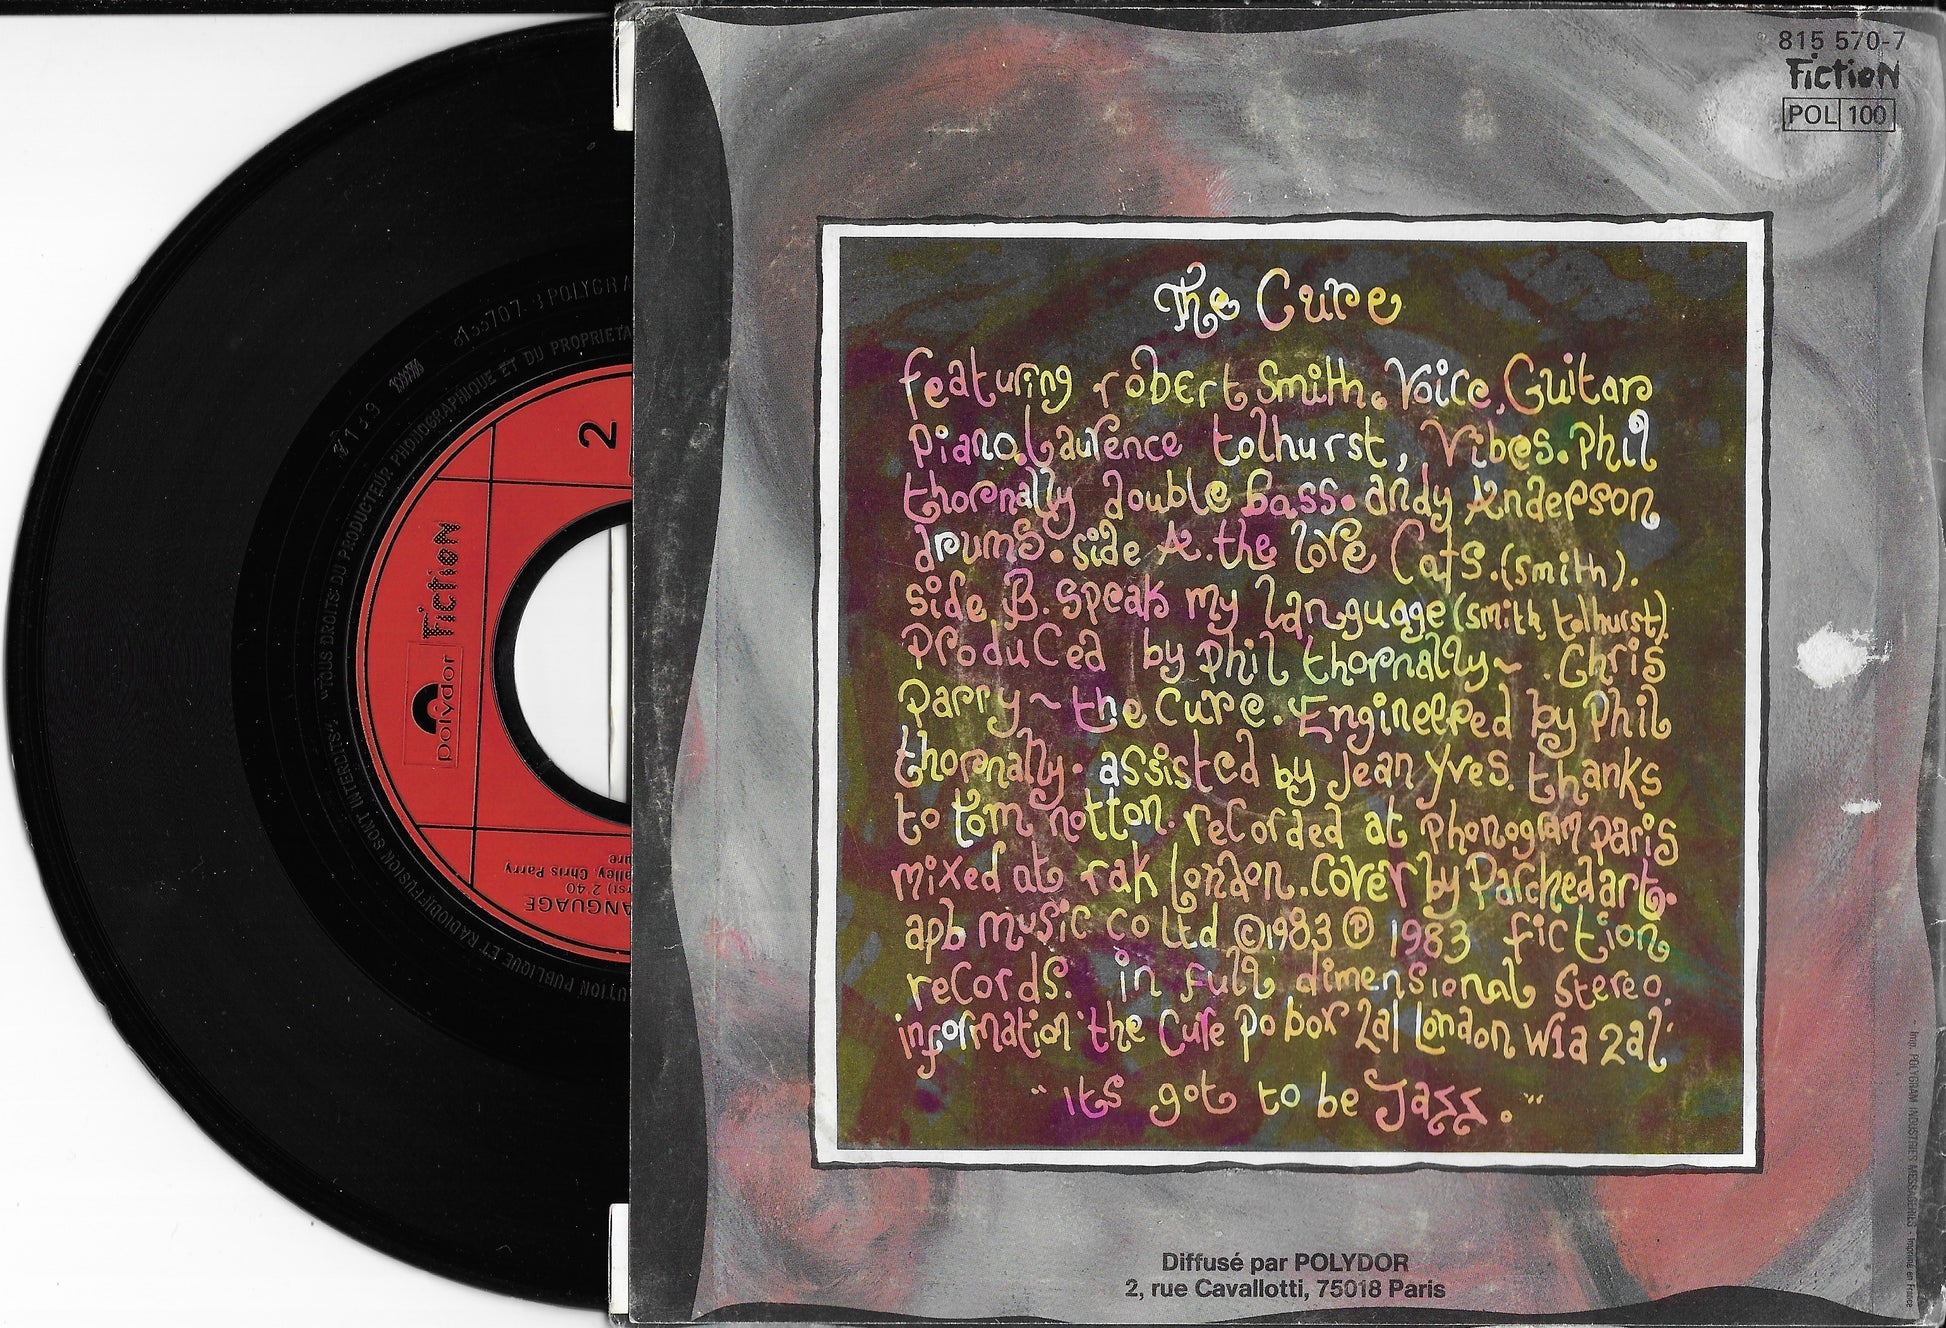 815 570-7
Fiction
POL 100
The Cure
featuring robert smith. Voice, Guitar
piano. Laurence tolhurst, Vibes. Phil
thornally double bass. andy Anderson
drums. side A. the love Cats. (smith).
side B. speak my language (smith tolhurst).
produced by phil thornally ~ . Chris
Parry ~ the cure. Engineered by Phil
thornally. assisted by Jean Yves. thanks
to tom notton. recorded at phonogram paris
mixed at rak london. Cover by Parched art.
apb music co ltd ©1983 ℗ 1983 fiction
records. in full dimensional stereo.
information the Cure po box 2al London W1a 2al.
"its got to be Jazz."
Diffusé par POLYDOR
2, rue Cavallotti, 75018 Paris
Imp. POLYGRAM INDUSTRIES MESSAGERIES - Imprimé en France
2
Fiction
polydor
ANGUAGE
rst) 2'40
alley, Chris Parry
ure
TOUS DROITS DU PRODUCTEUR PHONOGRAPHIQUE ET DU PROPRIETA
UTION PUBLIQUE ET RADIODIFFUSION SONT INTERDITS
POLYGRA